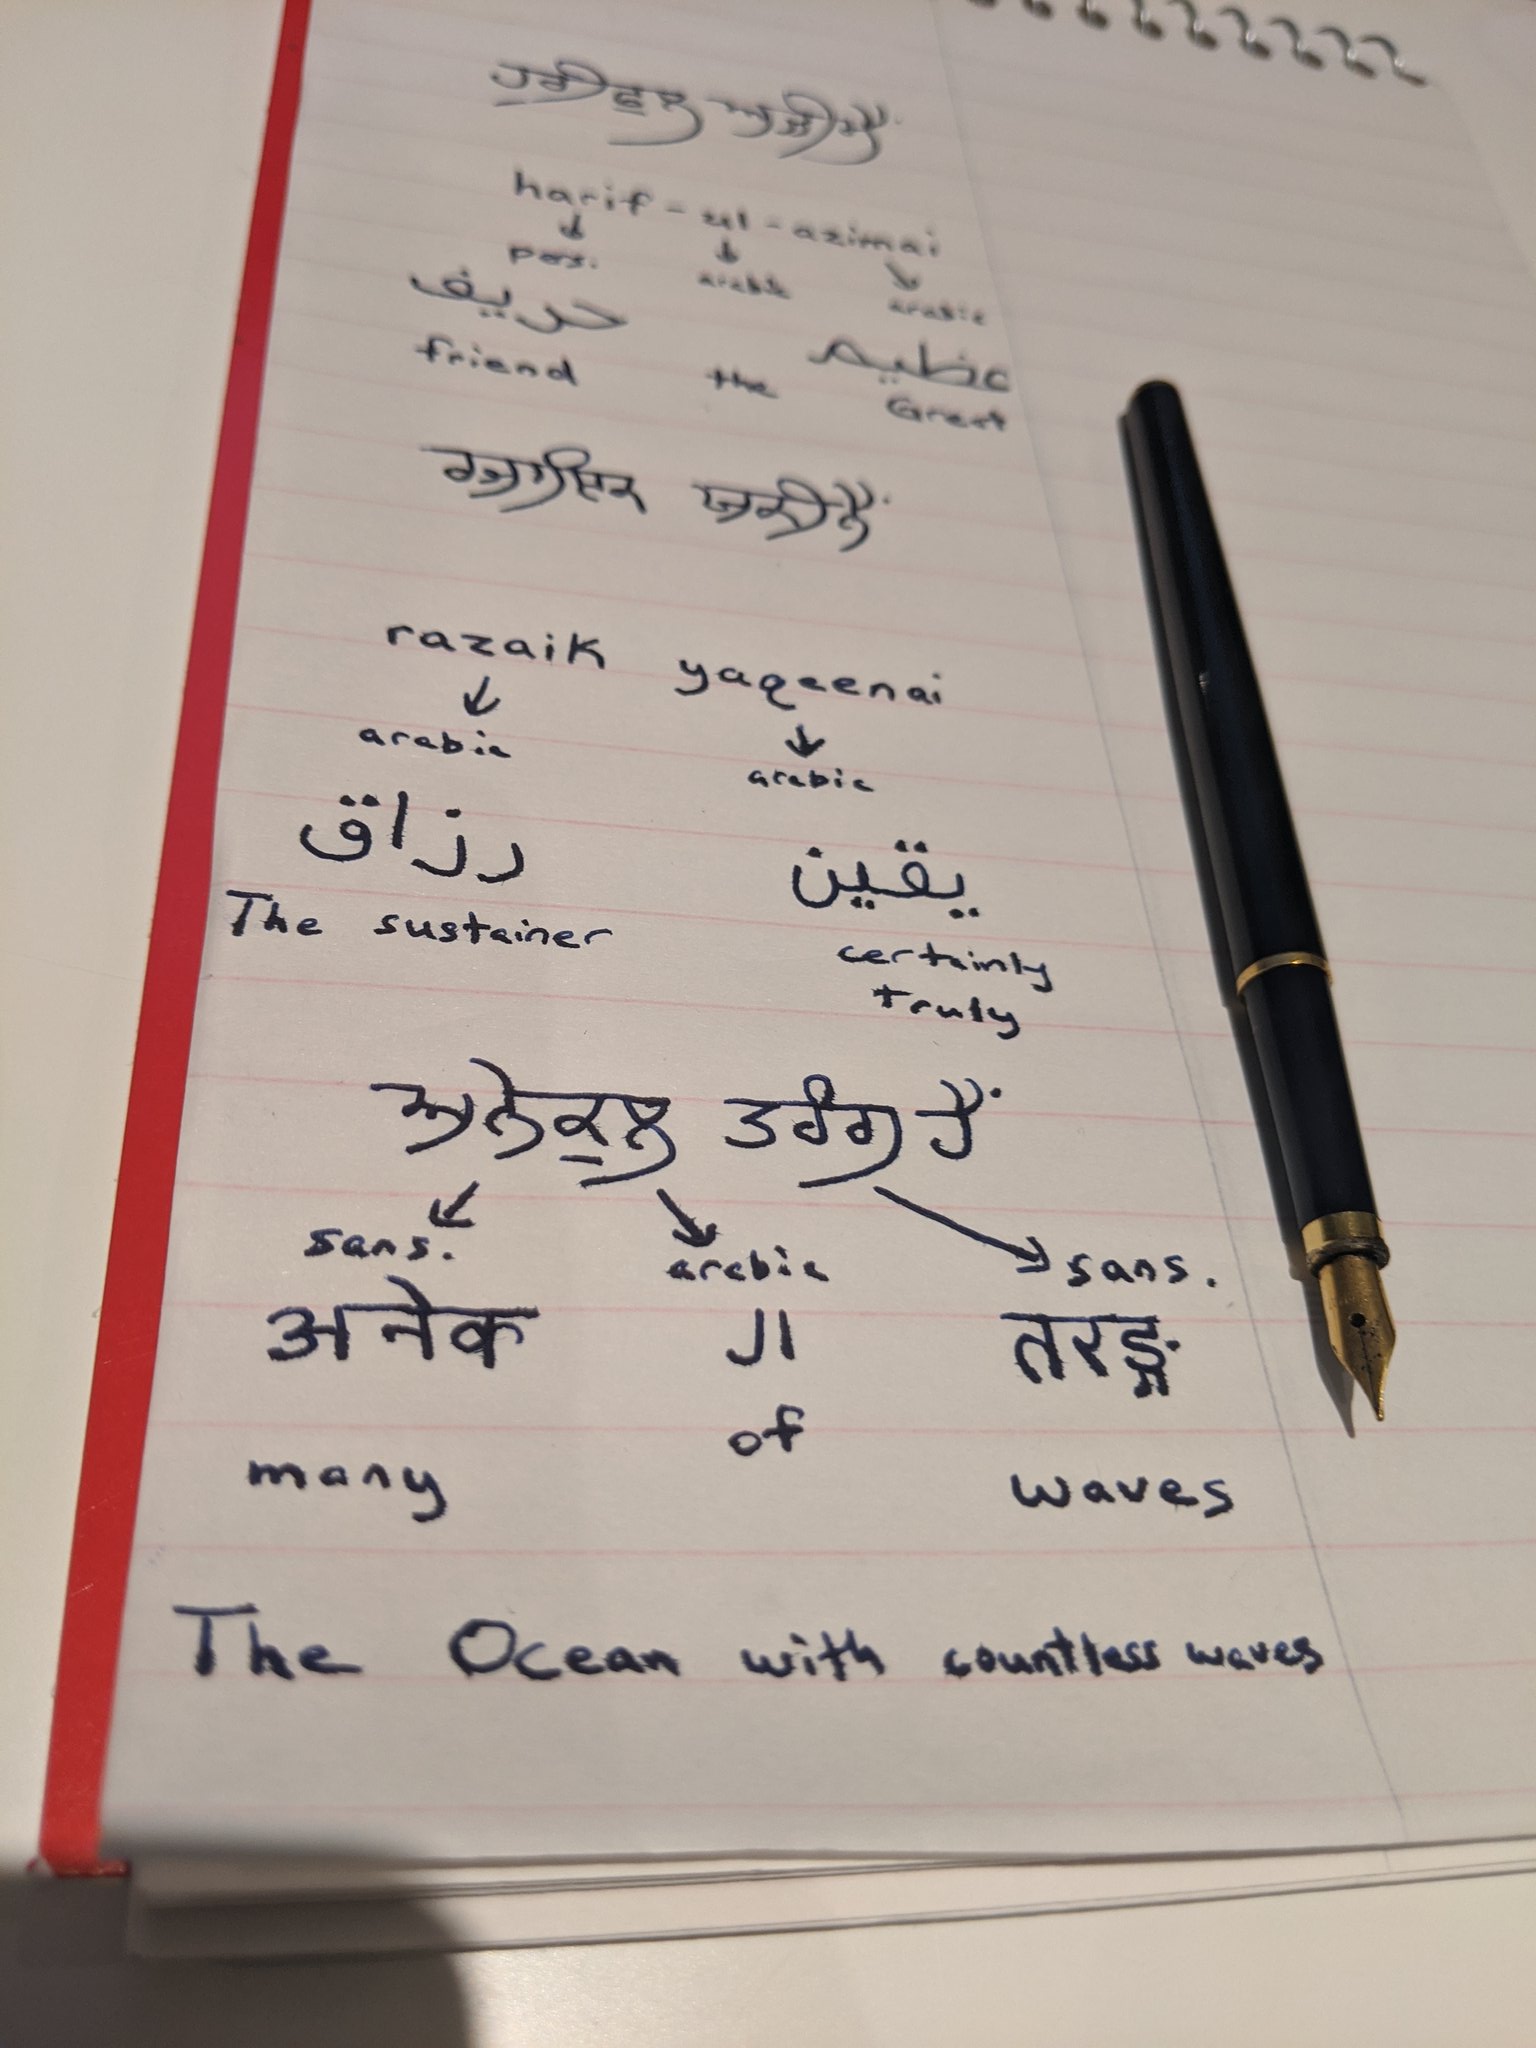 ਹਰੀਫੁਲ ਅਜੀਮੈਂ
harif - ul - azimai
pers. arabic arabic
حريف عظيم
friend the Great
ਰਜਾਇਕ ਯਕੀਨੈਂ
razaik yaqeenai
arabic arabic
رزاق يقين
The sustainer certainly
truly
ਅਨੇਕੁਲ ਤਰੰਗ ਹੈਂ
sans. arabic sans.
अनेक ال तरङ्ग
many of waves
The Ocean with countless waves